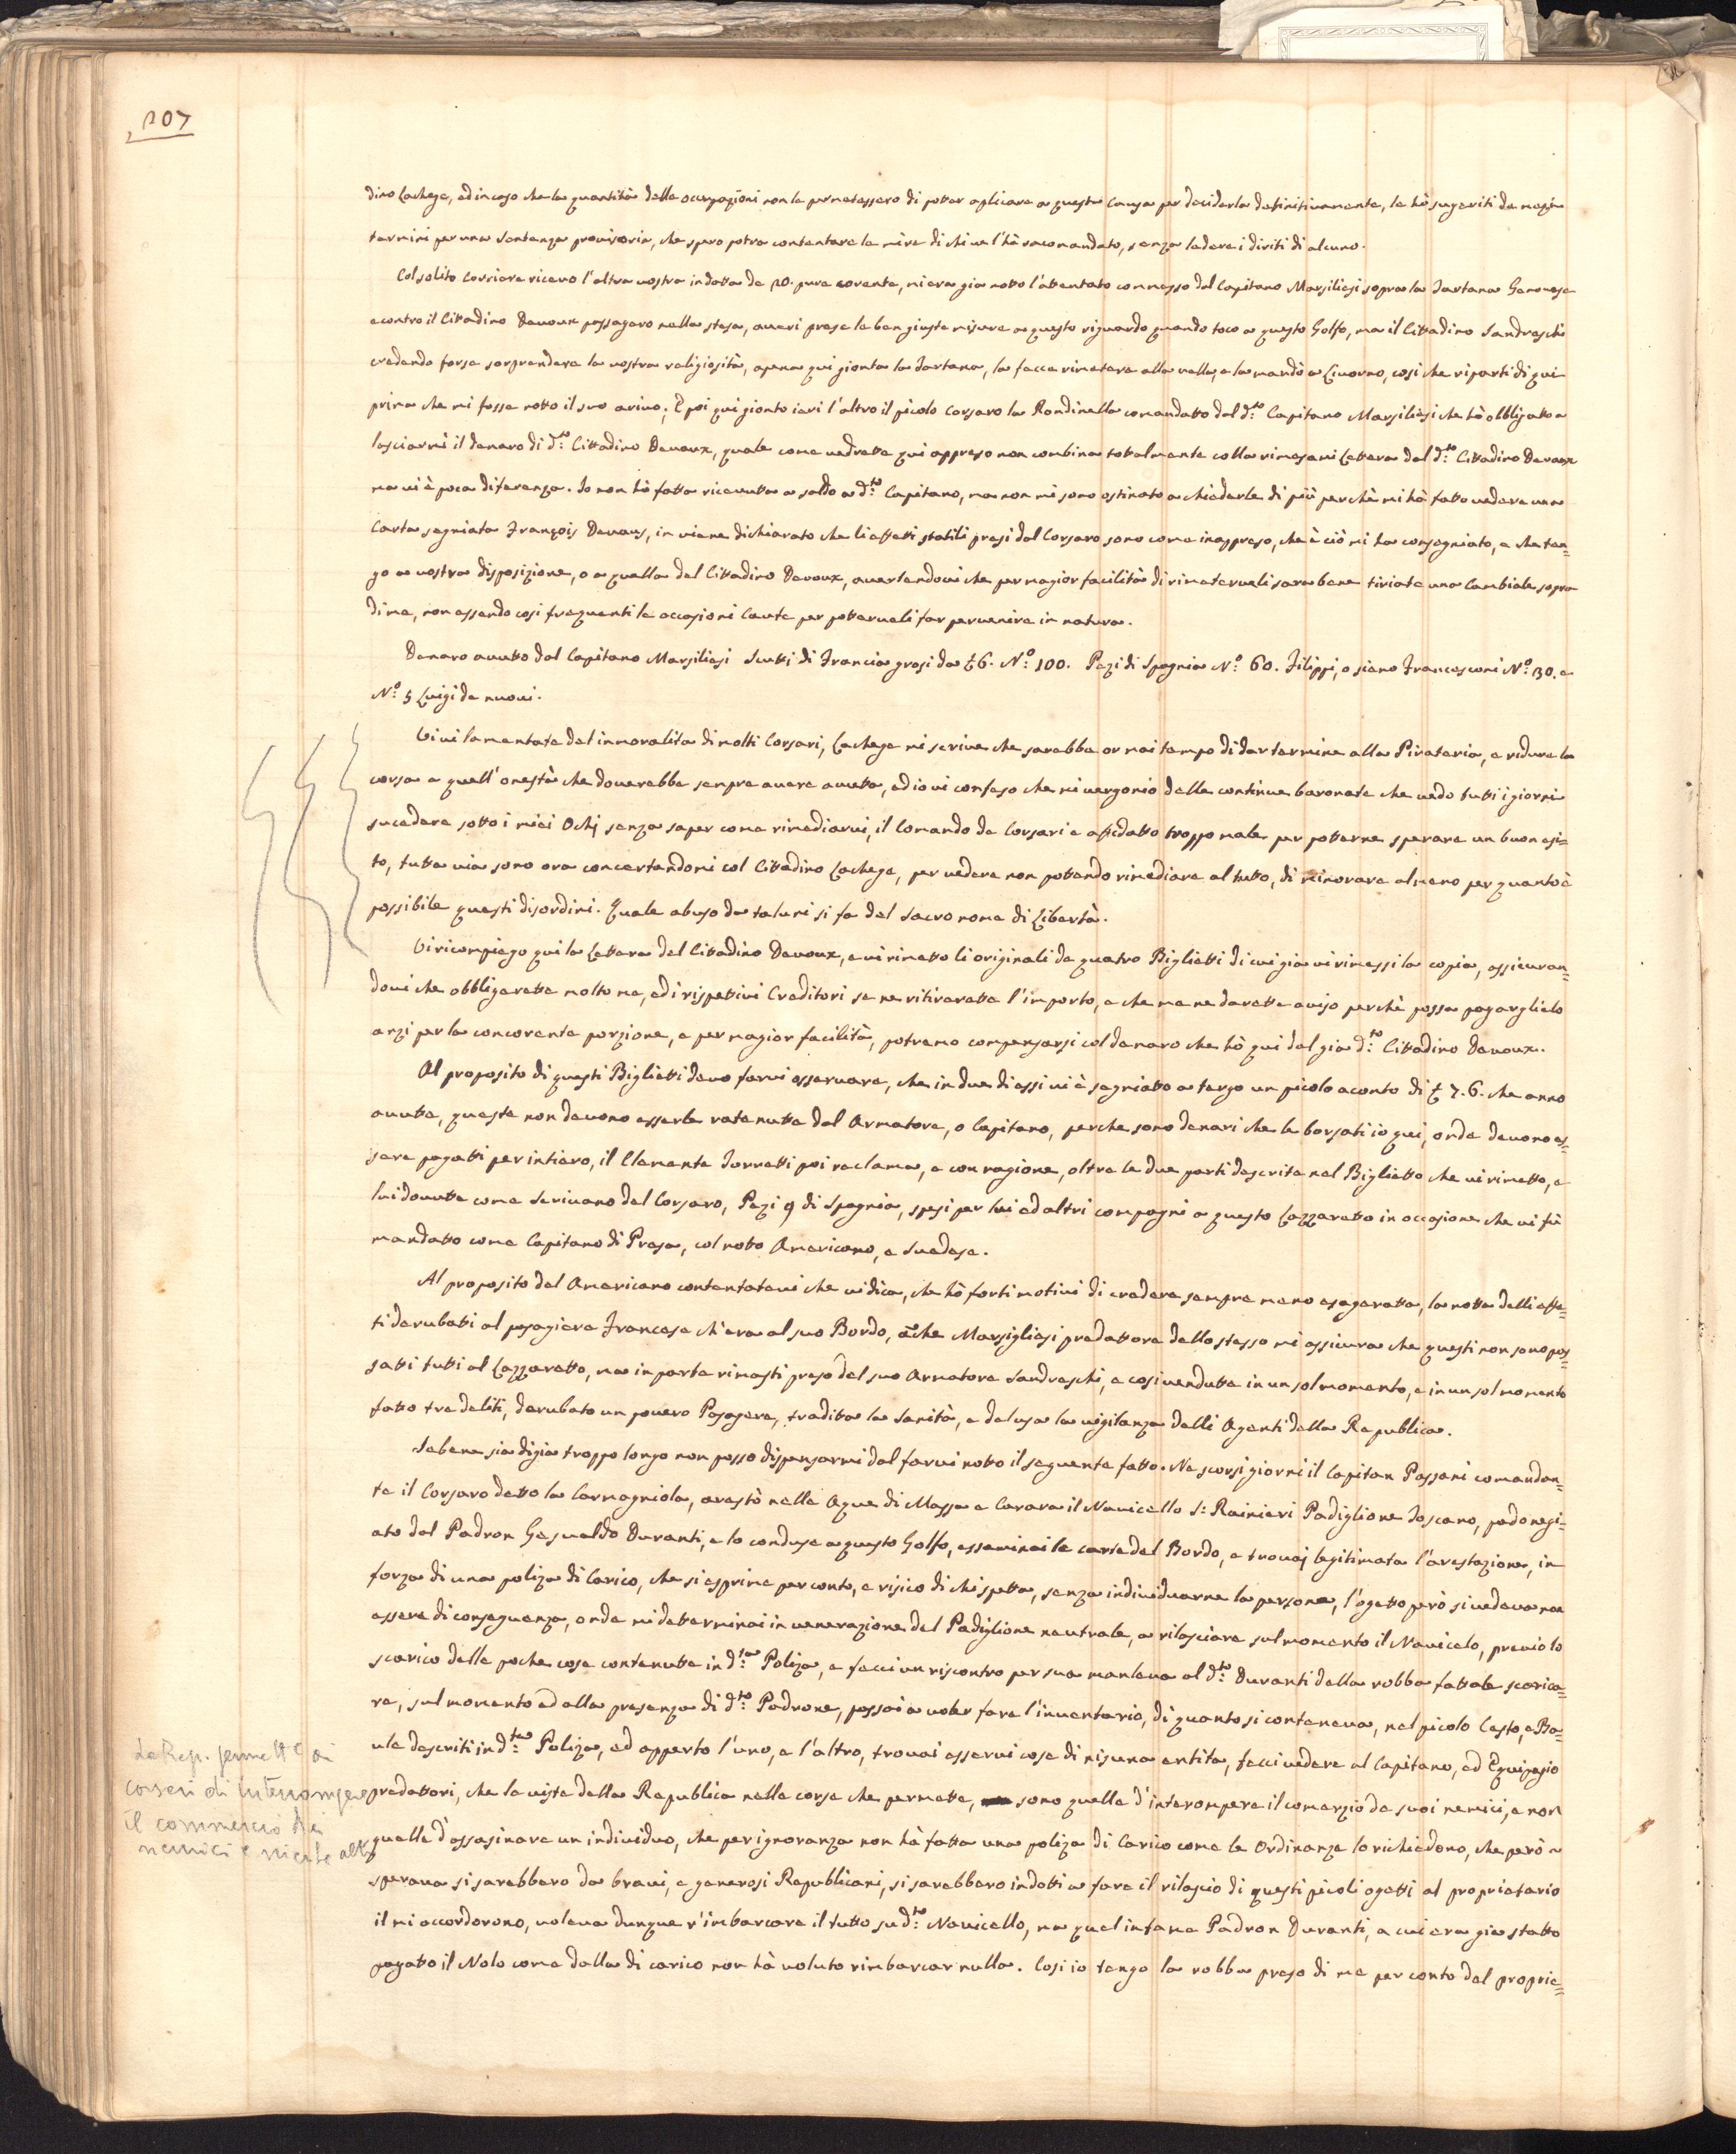 207
dino Lachege, ed in caso che la quantità delle occupazioni non le permetessero di potter apliciare a questa Causa per deciderla definitivamente, le hò sugeriti de mezi
termini per una Sentenza provisoria, che spero potra contentare le mire di chi ve l'hà racomandato, senza ledere i diriti di alcuno.
Col solito Corriere ricevo l'altra vostra in datta de 20. pure corente, mi era gia notto l'attentato commesso dal Capitano Marsiliesi sopra la Tartana Genovese
e contro il Cittadino Devoux passagero nella stesa, averi prese le ben giuste misure a questo riguardo quando toco a questo Golfo, ma il Cittadino Sandreschi
credendo forse sorprendere la vostra religiosità, apena qui gionta la Tartana, la fecce rimetere alla vella, e la mandò a Livorno, cosi che ripartì di qui
prima che mi fosse notto il suo arivo; È poi qui gionto ieri l'altro il picolo Corsaro la Rondinella comandatto dal d:to Capitano Marsiliesi che hò obbligatto a
lasciarmi il denaro di d:to Cittadino Devoux, quale come vedrette qui appreso non combina tottalmente colla rimesami Lettera dal d:to Cittadino Devoux
ma vi è poca diferenza. Io non hò fatta ricevutta a saldo a d:to Capitano, ma non mi sono ostinato a chiederle di più perchè mi hà fatto vedere una
Carta segniata François Devaus, in viene dichiarato che li effetti stabili presi dal Corsaro sono come inappreso, che è ciò mi ha consegniato, e che ten=
go a vostra disposizione, o a quella del Cittadino Devoux, avertendovi che per magior facilità di rimeterveli sara bene tiriate una Cambiale sopra
di me, non essendo cosi frequenti le occasioni Caute per pottervali far pervenire in natura.
Denaro avutto dal Capitano Marsiliesi Scutti di Francia grosi da £ 6. N:o 100. Pezi di Spagnia N:o 60. Filippi, o sieno Francesconi N:o 130. e
N:o 5 Luigi de nuovi.
Vi vi lamentate del inmoralita di molti Corsari, Lachege mi scrive che sarebbe or mai tempo di dar termine alla Pirateria, e ridure la
corsa a quell'onestà che doverebbe sempre avere avuta, ed io vi confeso che mi vergonio delle continue baronate che vedo tutti i giorni
sucedere sotto i miei Ochj senza saper come rimediarvi, il Comando de Corsari e affidatto troppo male per potterne sperare un buon esi=
to, tutta via sono ora concertandomi col Cittadino Lachege, per vedere non pottendo rimediare al tutto, di minorare almeno per quanto è
possibile questi disordini. Quale abuso da taluni si fa del Sacro nome di Libertà.
Vi ricompiego qui la Lettera del Cittadino Devoux, e vi rimetto li originali de quatro Biglietti di cui gia vi rimessi la copia, assicuran=
dovi che obbligarette molto me, ed i rispettivi Creditori se ne ritirarette l'importo, e che me ne darette aviso perchè possa pagarglielo
anzi per la concorente porzione, e per magior facilità, potremo compensarsi col denaro che hò qui del gia d:to Cittadino Devoux.
Al proposito di questi Biglietti devo farvi osservare, che in due di essi vi è segniatto a tergo un picolo aconto di £ 7.6. che anno
avutte, queste non devono esserle ratenutte dal Armatore, o Capitano, perche sono denari che le borsati io qui, onde devono es=
sere pagatti per intiero, il Clemente Torretti poi reclama, e con ragione, oltre le due parti descrite nel Biglietto che vi rimetto, e
lui dovutte come Scrivano del Corsaro, Pezi 9 di Spagnia, spesi per lui ed altri compagni a questo Lazzaretto in occasione che vi fù
mandatto come Capitano di Presa, col noto Americano, e Suedese.
Al proposito del Americano contentatevi che vi dica, che hò forti motivi di credere sempre meno esagerata, la notta delli effe=
ti derubatti al pasagiere Francese ch'era al suo Bordo, che Marsigliesi predattore dello stesso mi assicura che questi non sono pas=
satti tutti al Lazzaretto, ma in parte rimasti preso del suo Armatore Sandreschi, e cosi vendutte in un sol momento, e in un sol momento
fatto tre delitti, derubato un povero Pasagere, tradita la Sanità, e delusa la vigilanza delli Agenti della Republica.
Sebene sia digia troppo longo non posso dispensarmi dal farvi notto il seguente fatto. Ne scorsi giorni il Capitan Passani comandan=
te il Corsaro detto la Carmagniola, arestò nelle Aque di Massa e Carara il Navicello S: Rainieri Padiglione Toscano, padronegi=
ato dal Padron Gesualdo Duranti, e lo conduse a questo Golfo, essaminai le carte del Bordo, e trovaj legitimata l'arestazione, in
forza di una poliza di Carico, che si esprime per conto, e risico di chi spetta, senza individuarne la persona, l'ogetto però si vedeva non
essere di conseguenza, onde mi determinai in venerazione del Padiglione neutrale, a rilasciare sul momento il Navicelo, previo lo
scarico delle poche cose contenutte in d:ta Poliza, e fecci un riscontro per sua manleva al d:to Duranti della robba fattale scarica=
re, sul momento ed alla presenza di d:to Padrone, passai a voler fare l'inventario, di quanto si conteneva, nel picolo Cesto, e Ba=
ule descriti in d:ta Poliza, ed apperto l'uno, e l'altro, trovai esservi cose di nisuna entita, fecci vedere al Capitano, ed Equipagio
predattori, che le viste della Republica nelle corse che permette, sono quelle d'interompere il comerzio de suoi nemici, e non
quelle d'assasinare un individuo, che per ignoranza non hà fatta una poliza di Carico come le Ordinanze lo richiedono, che però a
sperava si sarebbero da bravi, e generosi Republicani, si sarebbero indotti a fare il rilascio di questi picoli ogetti al proprietario
il mi accordorono, voleva dunque r'imbarcare il tutto su d:to Navicello, ma quel infame Padron Duranti, a cui era gia statto
pagatto il Nolo come dalla di carico non hà voluto rimbarcar nulla. Cosi io tengo la robba preso di me per conto del proprie=
La Rep. permette ai
corsari di interrompere
il commercio dei
nemici e niente altro